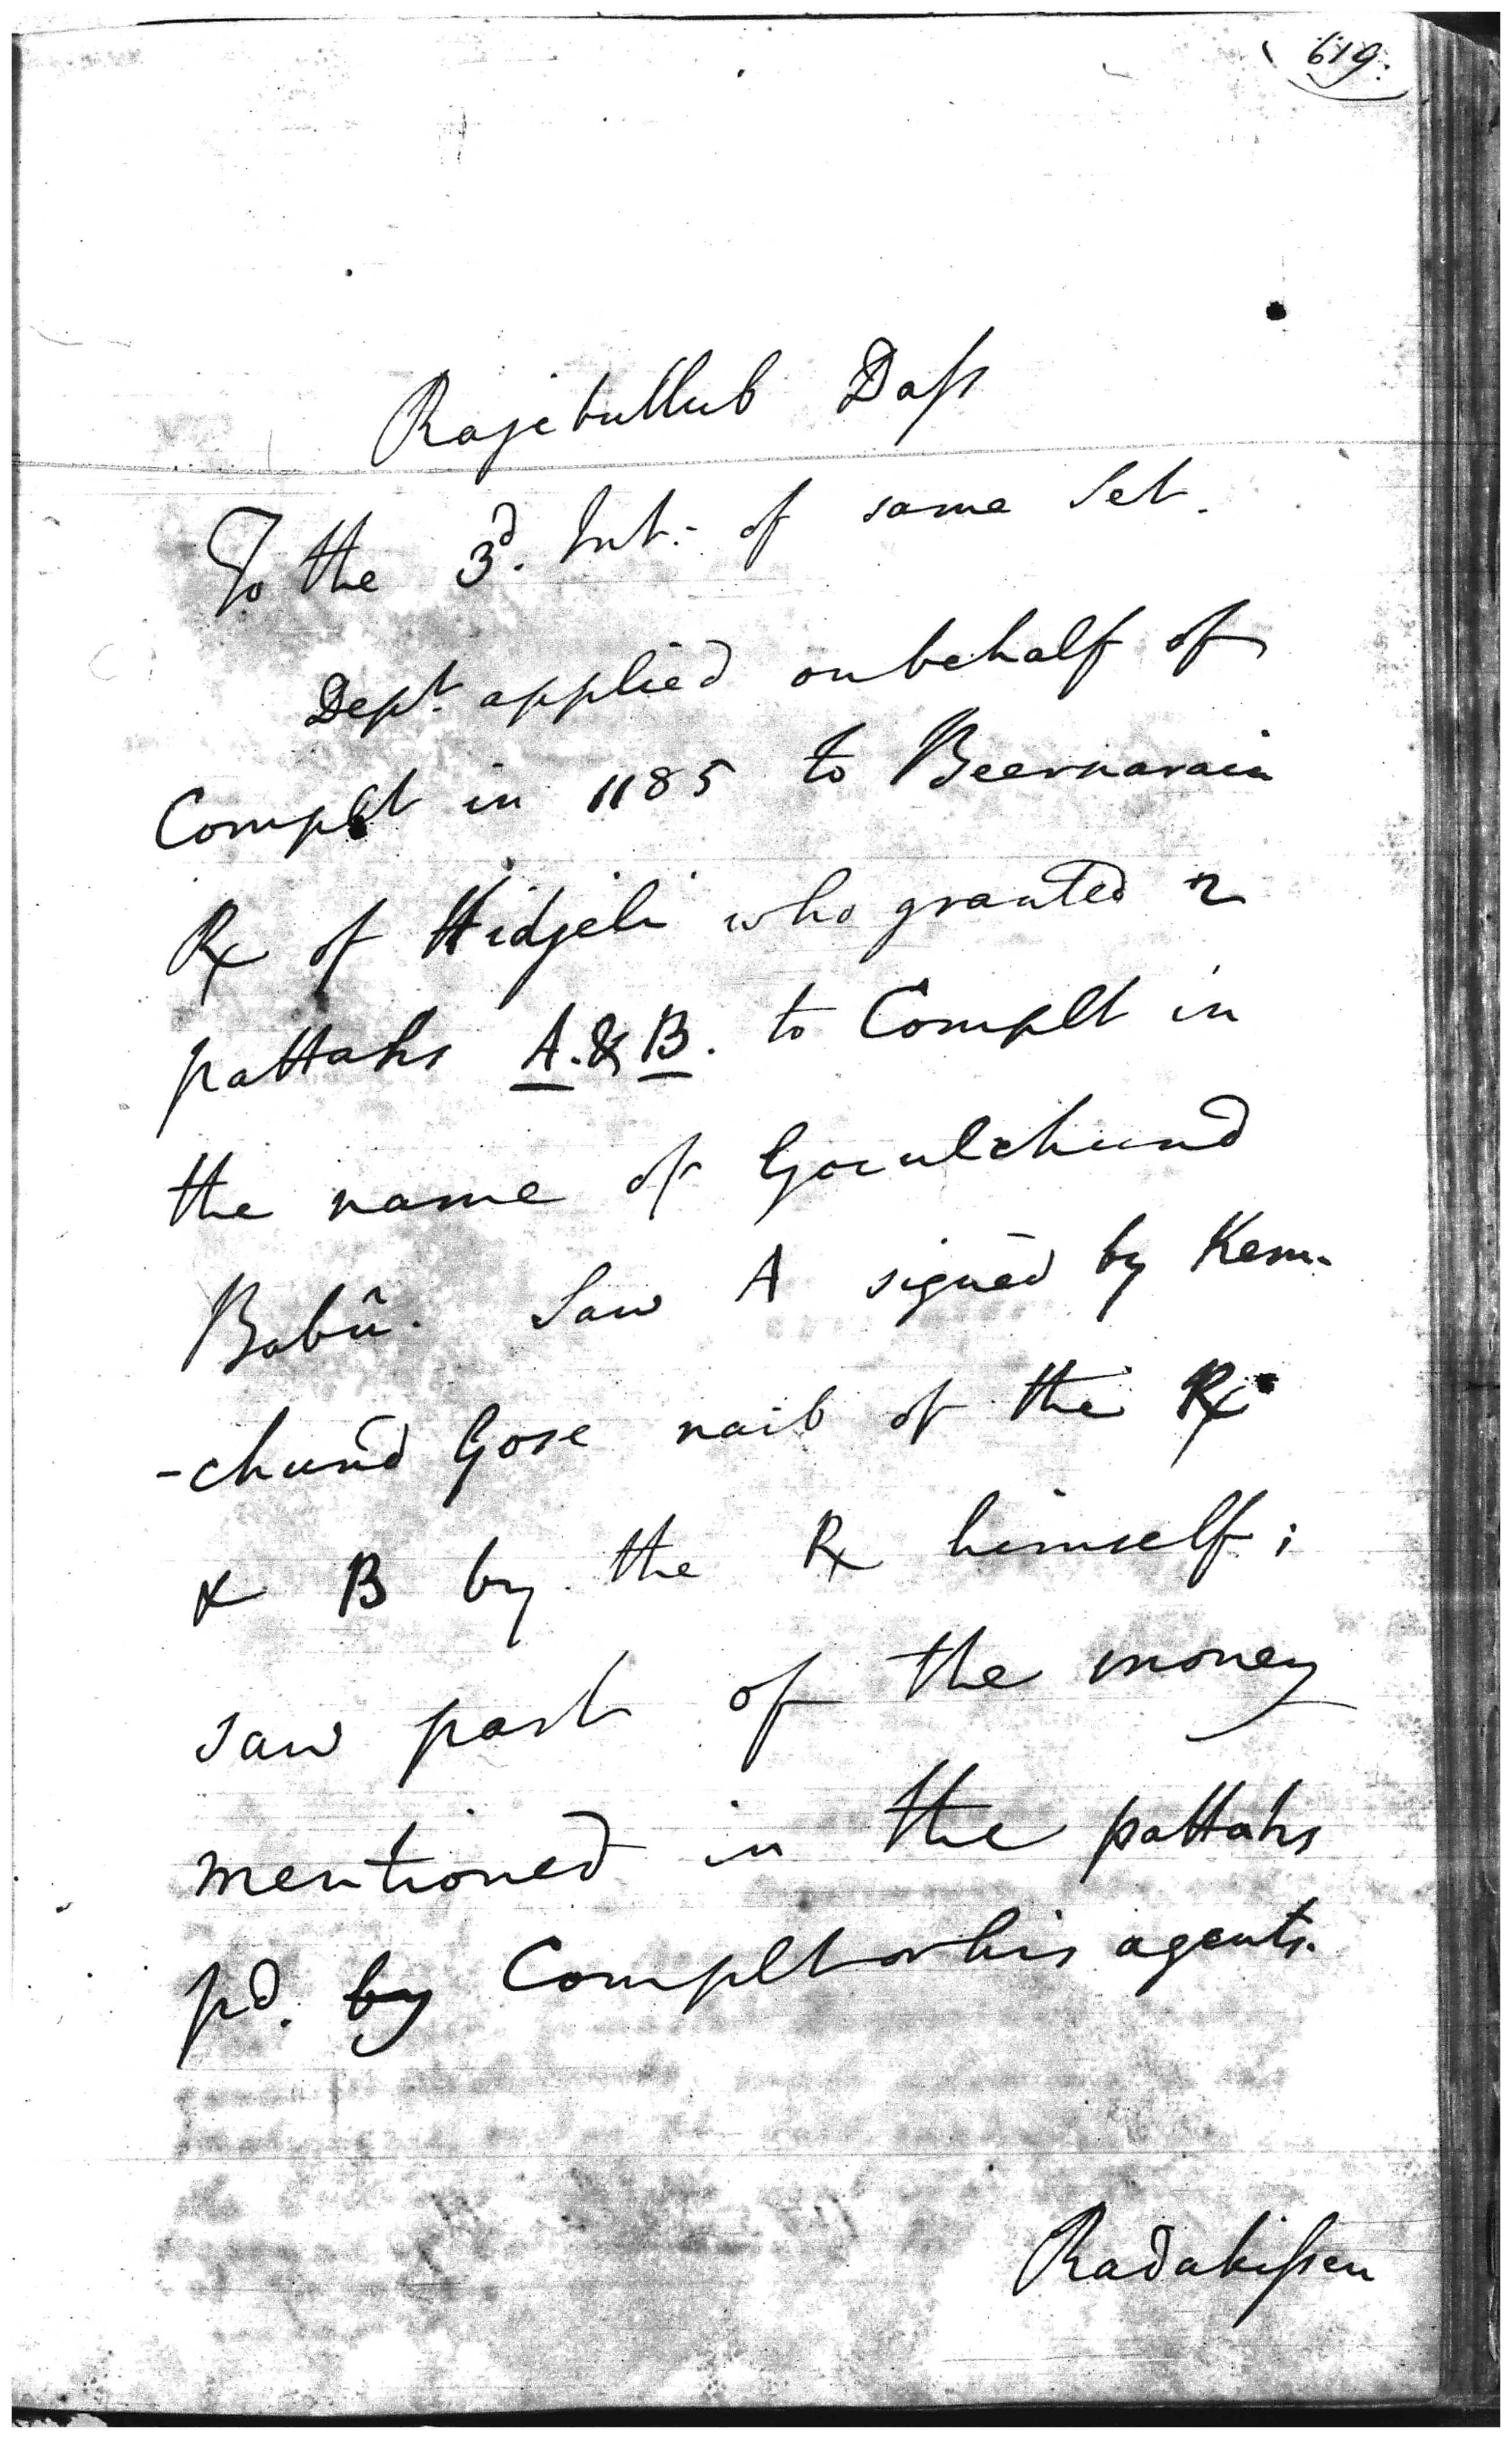 619.
Rajebullub Dass
To the 3d. Int. of same Set.
Dept. applied on behalf of
Complt in 1185 to Beernarain
Rx of Hidjeli who granted 2
pattahs A. & B. to Complt in
the name of Goculchund
Babû. Saw A signed by Kem-
-chund Gose naib of the Rx
& B by the Rx himself;
saw part of the money
mentioned in the pattahs
pd. by Complt or his agents.
Radakissen